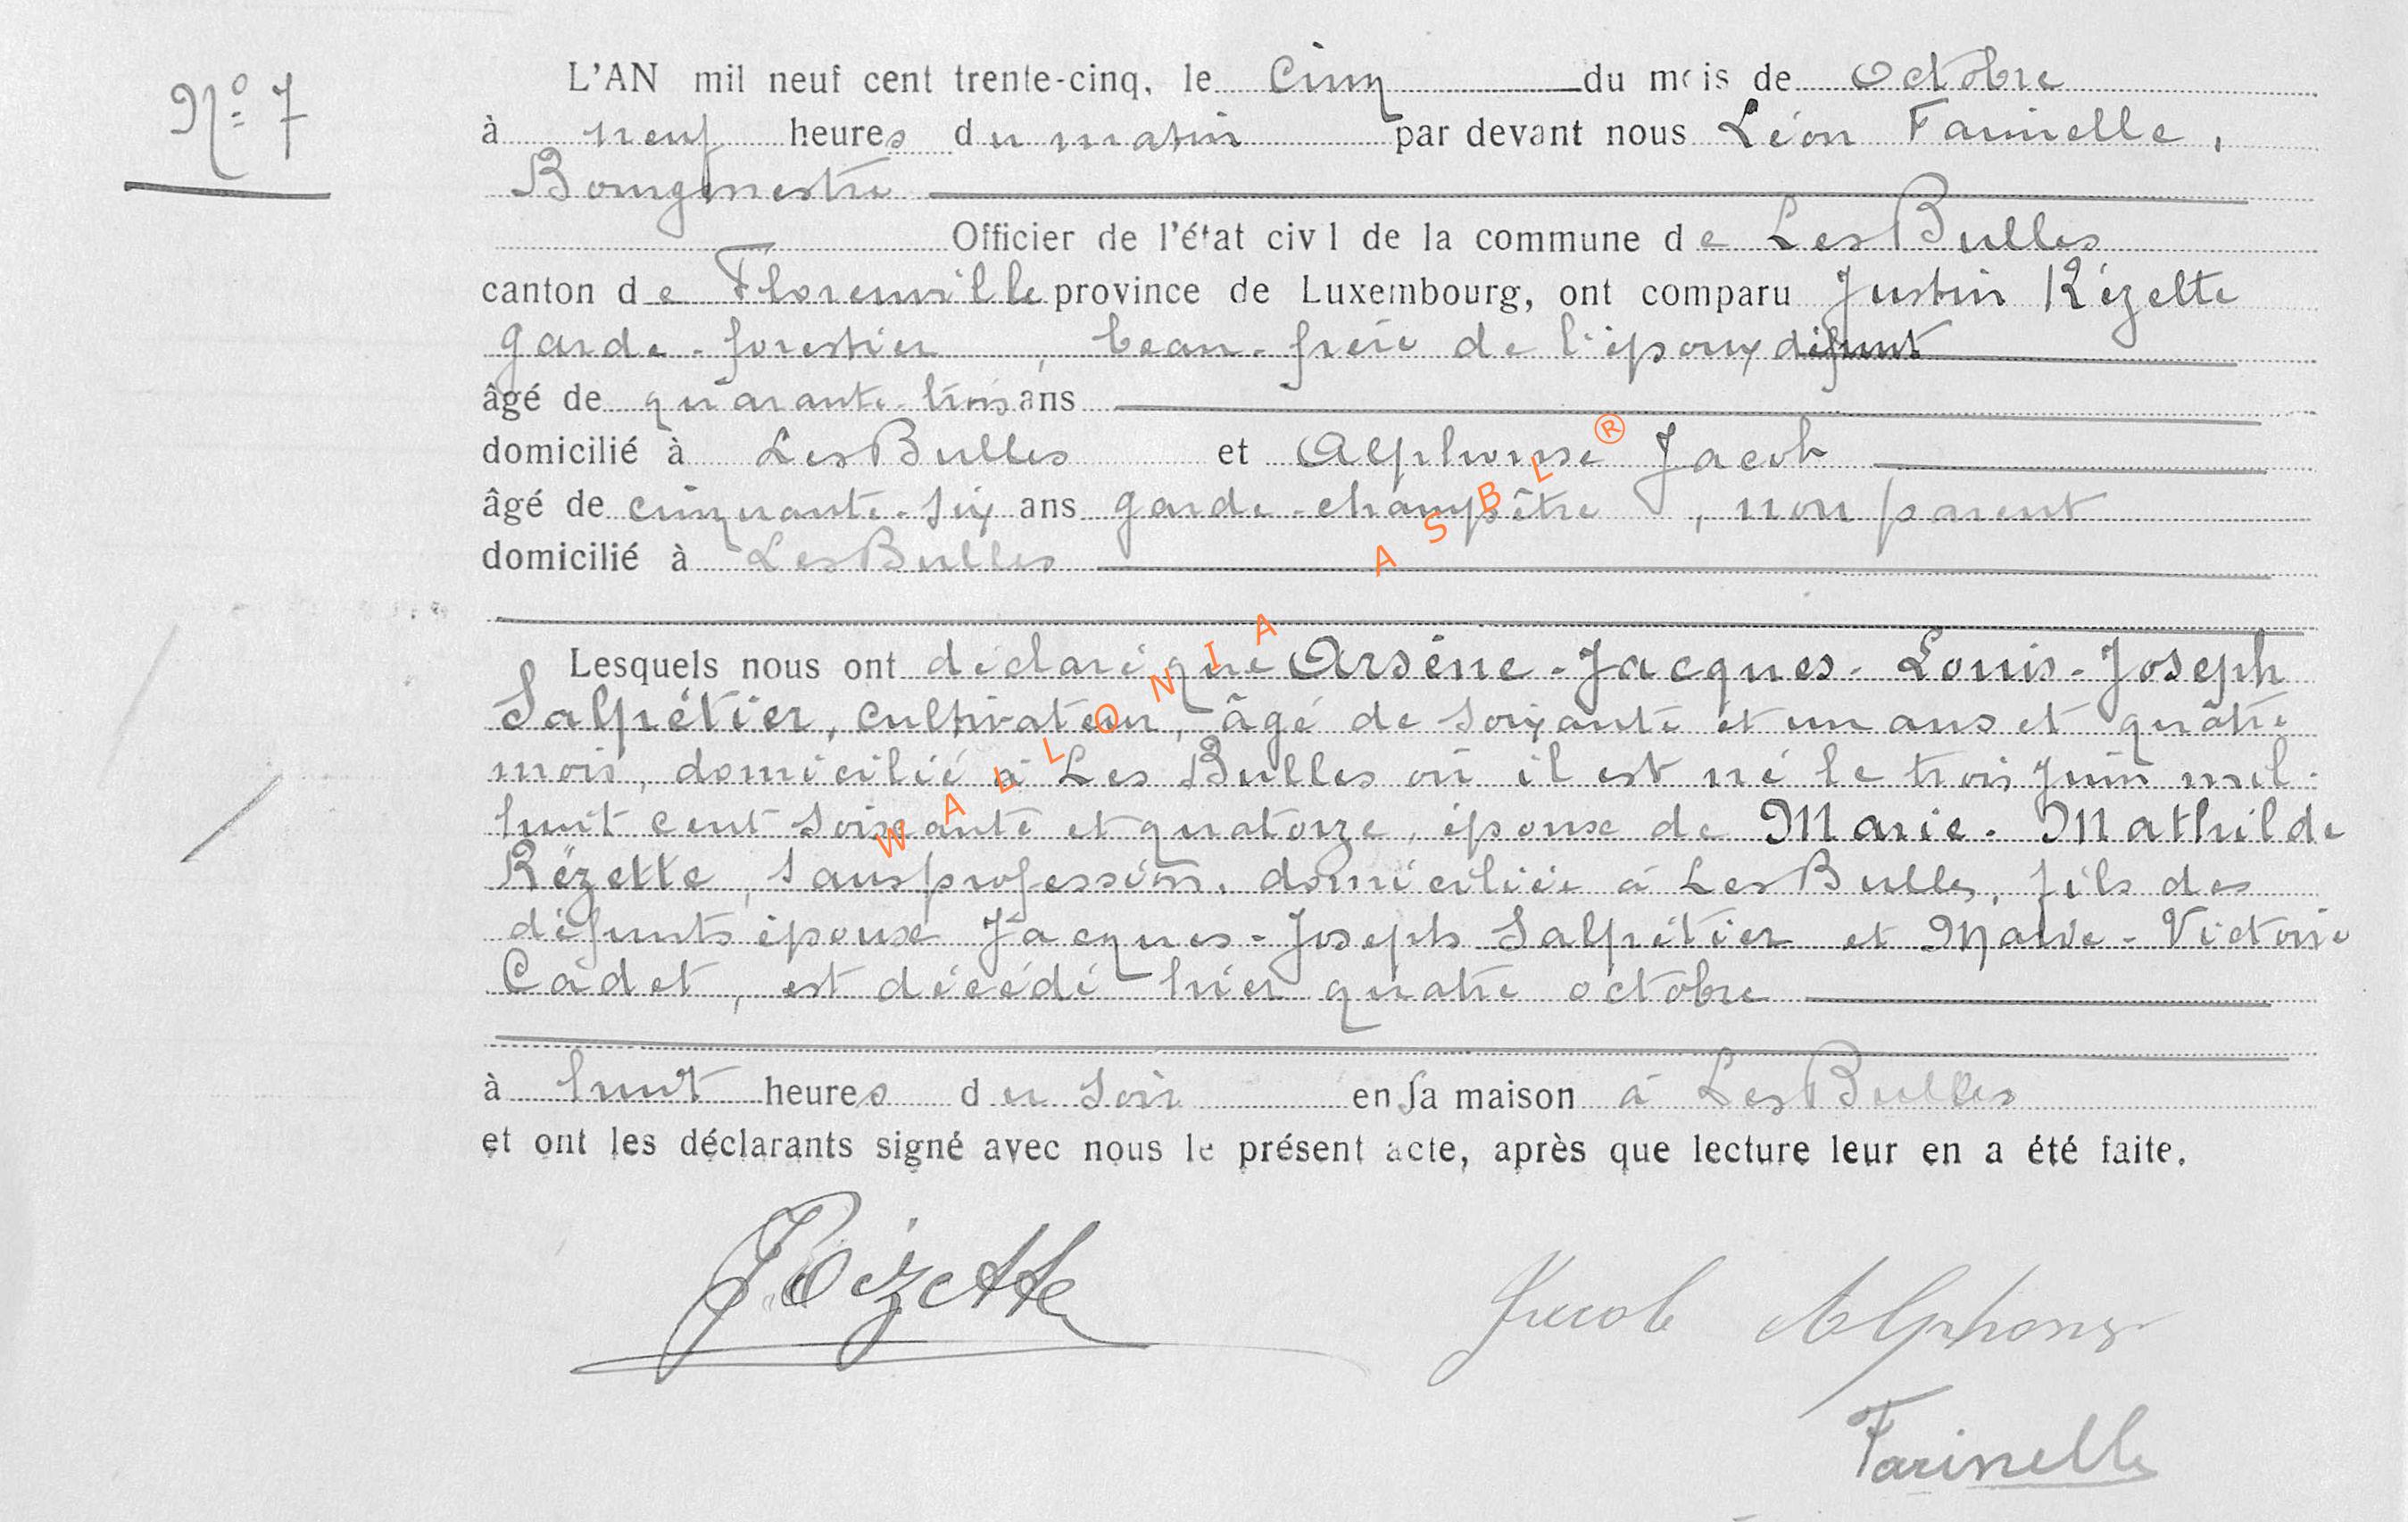 N° 7
L'AN mil neuf cent trente-cinq, le cinq du mois de Octobre
à neuf heures du matin par devant nous Léon Farinelle,
Bourgmestre
Officier de l'état civil de la commune de Les Bulles
canton de Florenville province de Luxembourg, ont comparu Justin Rézette
garde-forestier, beau-frère de l'époux défunt
âgé de quarante-trois ans
domicilié à Les Bulles et Alphonse Jacob
âgé de cinquante-six ans garde-champêtre, non parent
domicilié à Les Bulles
Lesquels nous ont déclaré que Arsène-Jacques-Louis-Joseph
Salpétier, cultivateur, âgé de soixante et un ans et quatre
mois, domicilié à Les Bulles où il est né le trois juin mil-
huit cent soixante et quatorze, époux de Marie-Mathilde
Rézette, sans profession, domiciliée à Les Bulles, fils des
défunts époux Jacques-Joseph Salpétier et Marie-Victoire
Cadet, est décédé hier quatre octobre
à huit heures du soir en sa maison à Les Bulles
et ont les déclarants signé avec nous le présent acte, après que lecture leur en a été faite.
J Rézette
Jacob Alphonse
Farinelle
WALLONIA ASBL®